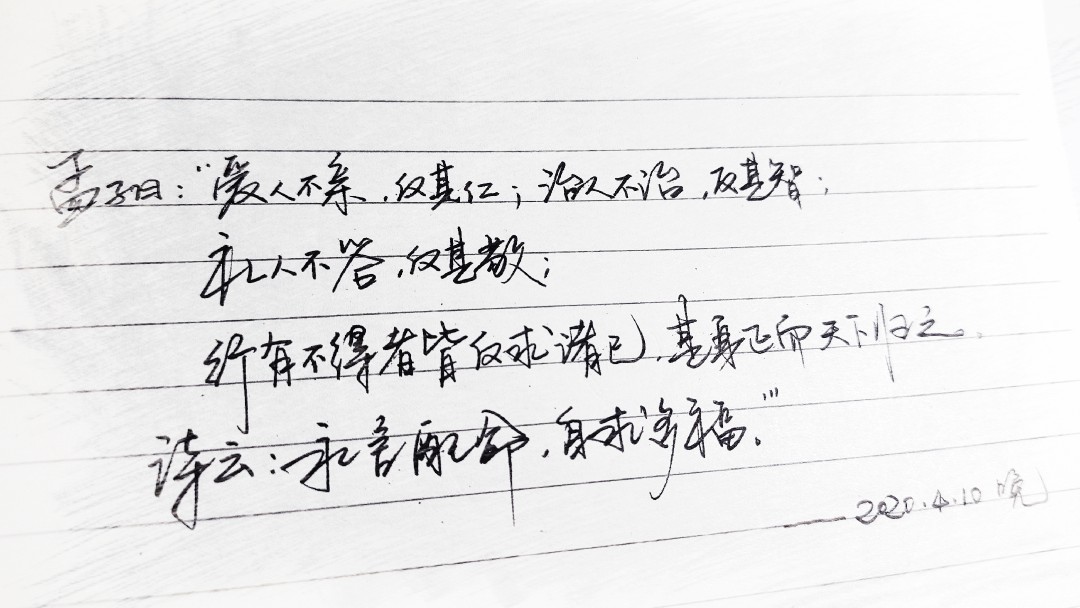 孟子曰：“爱人不亲，反其仁；治人不治，反其智；
礼人不答，反其敬；
行有不得者皆反求诸己，其身正而天下归之。
诗云：永言配命，自求多福。”
——2020.4.10 晚